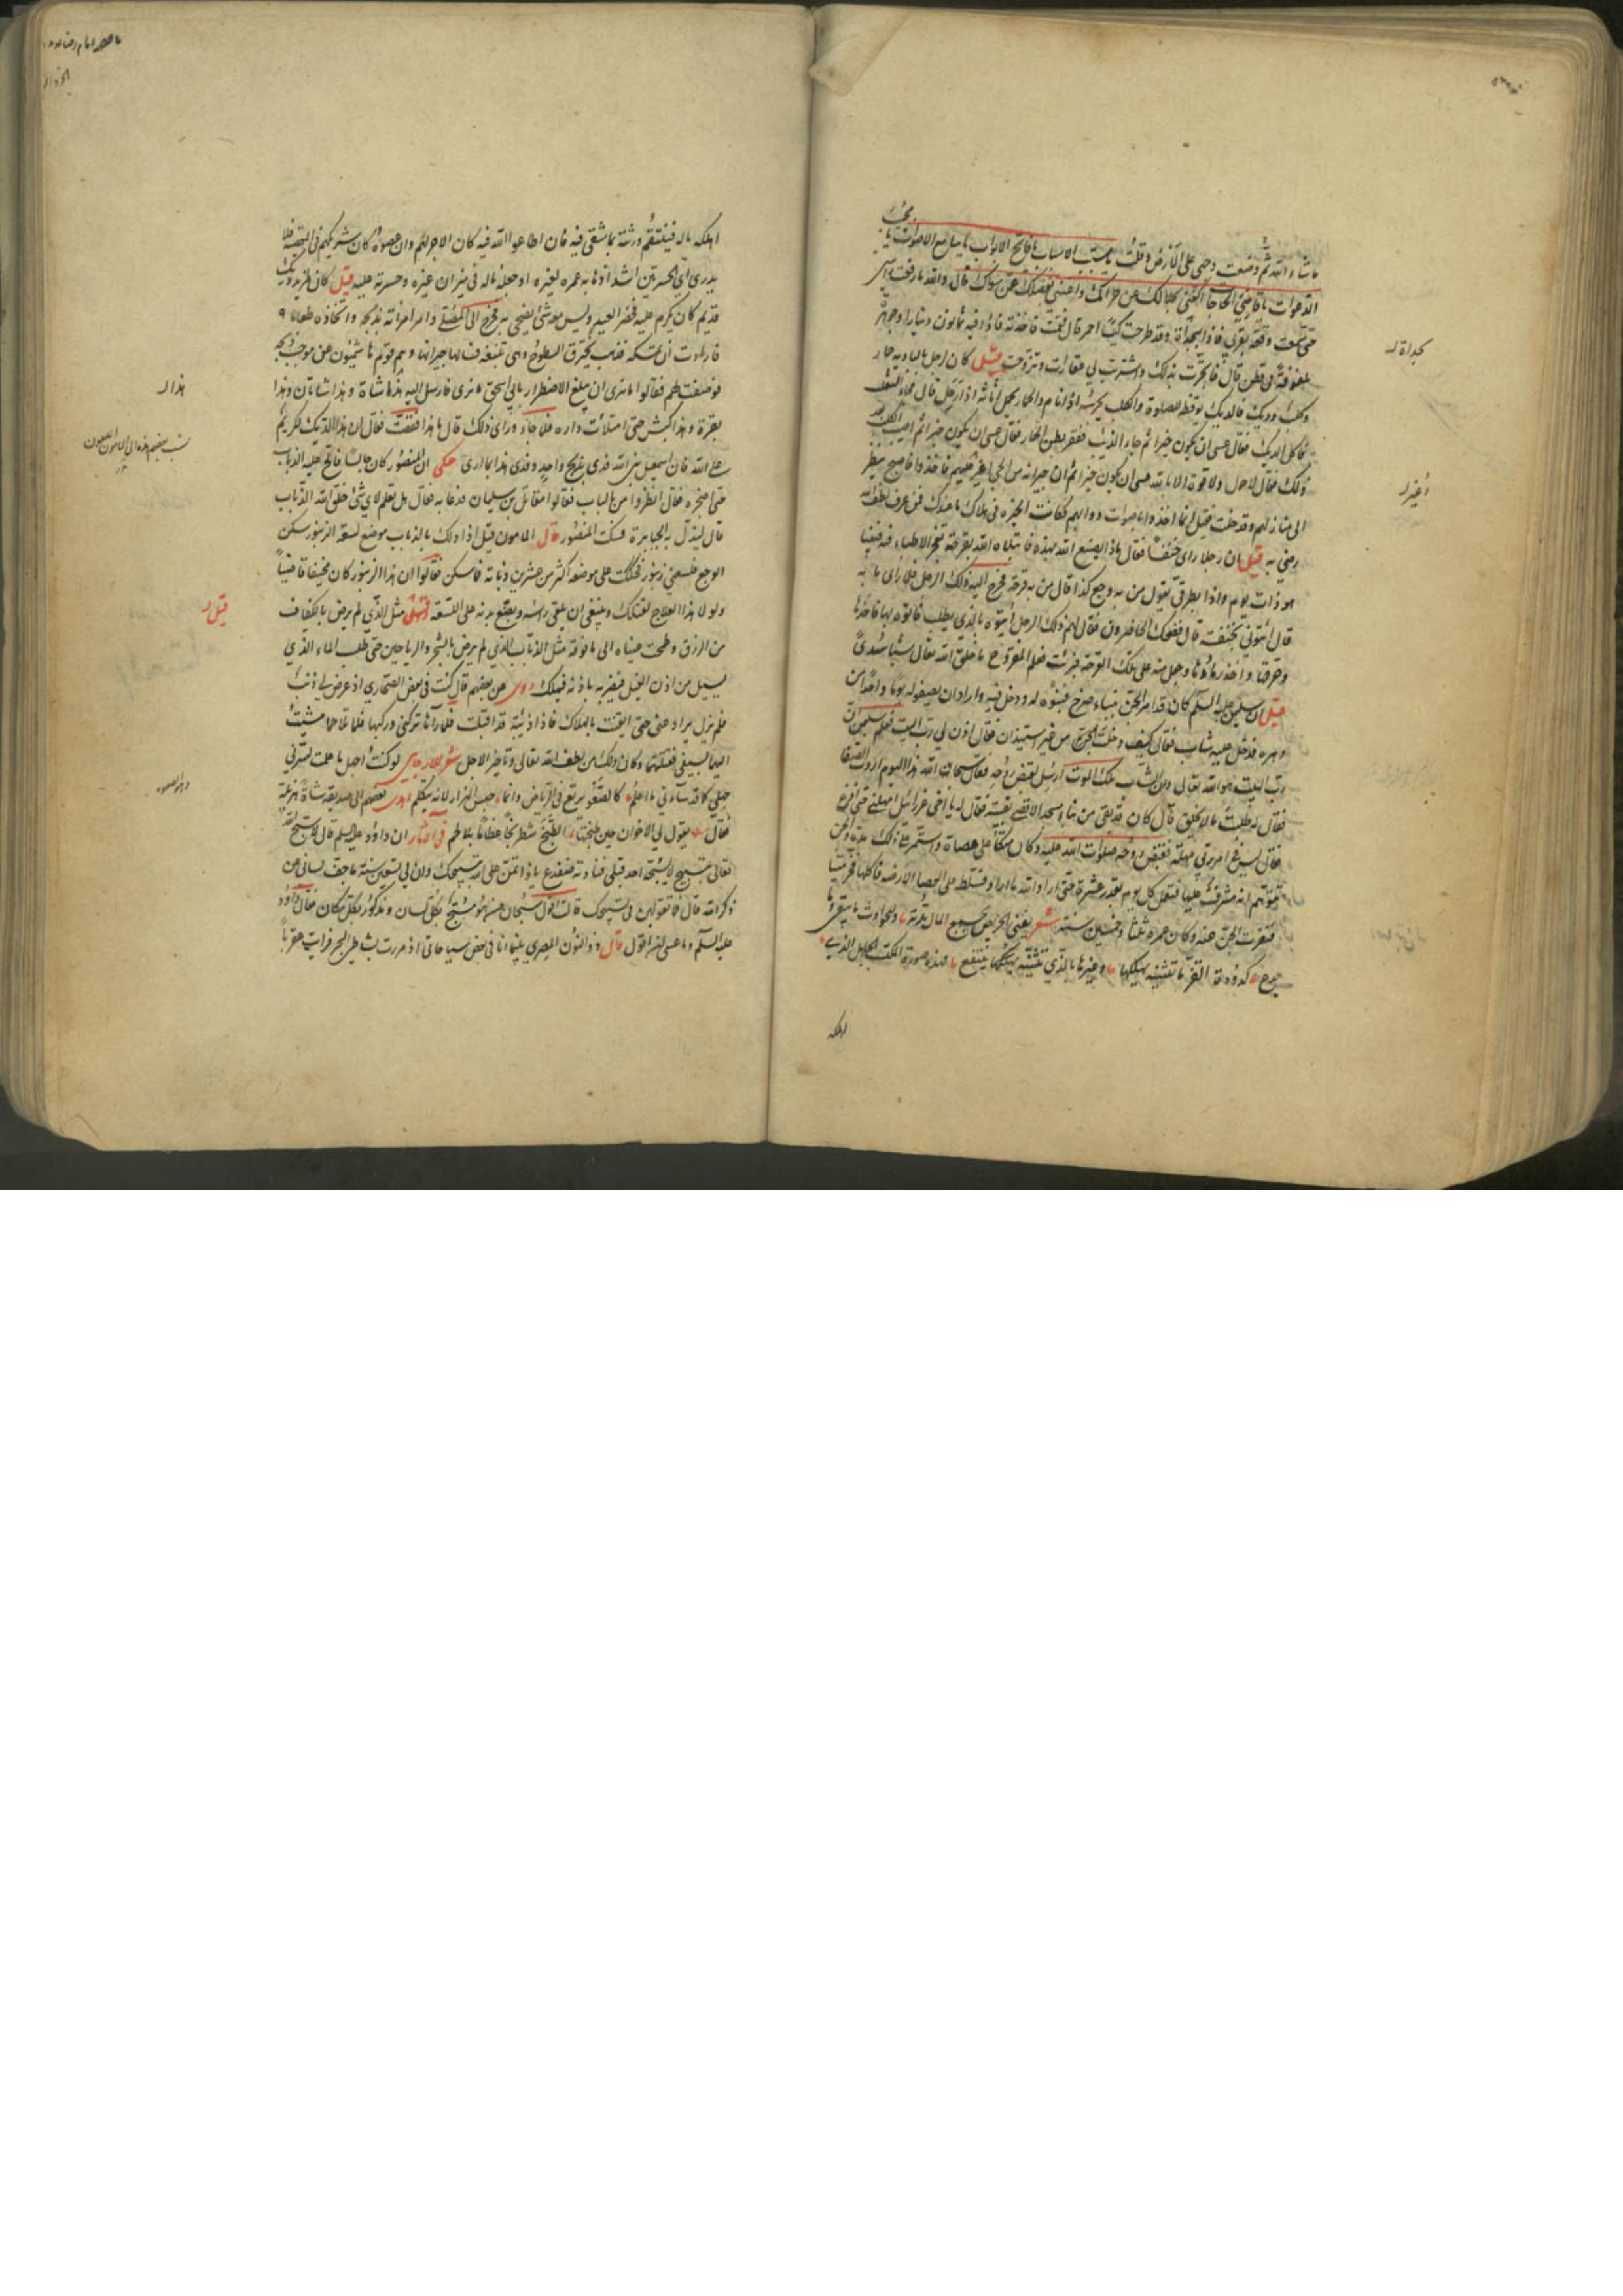 ما شاء الله ثم وضعت وجهي على الأرض وقلت يا مسبب الاسباب يا فاتح الابواب يا سامع الاصوات يا مجيب
الدعوات يا قاضي الحاجات اكفني بحلالك عن حرامك واغنني بفضلك عمن سواك قال والله ما رفعت رأسي
حتى سمعت وقعة بقربي فاذا بحدأة وقد طرحت كيسا احمر قال فقمت فاخذته فاذا فيه ثمانون دينارا وجوهر
ملفوفة في قطن قال فاتجرت بذلك واشتريت لي عقارات وتزوجت قيل كان رجل بالبادية حمار
وكلب وديك فالديك يوقظه للصلوة والكلب يحرسه اذا نام والحمار يحمل اثاثه اذا رحل قال فجاء الثعلب
فاكل الديك فقال عسى ان يكون خيرا ثم جاء الذئب فبقر بطن الحمار فقال عسى ان يكون خيرا ثم اصيب الكلب بعد
ذلك فقال لا حول ولا قوة الا بالله عسى ان يكون خيرا ثم ان جيرانه من الحي اغير عليهم فاخذوا فاصبح ينظر
الى منازلهم وقد خلت فقيل انما اخذوا باصوات دوابهم فكانت الخيرة في هلاك ما عندك فمن عرف لطف الله
رضي به قيل ان رجلا رأى خنفسا فقال ماذا يصنع الله بهذه فابتلاه الله بقرحة عجز الاطباء فيه فبينا
هو ذات يوم واذا بطرقي يقول من به وجع كذا قال من به قرحة فخرج اليه ذلك الرجل فلما رأى ما به
قال ائتوني بخنفسة قال فضحك الحاضرون فقال لهم ذلك الرجل ائتوه بالذي يطلب فاتوه بها فاخذها
وحرقها واخذ رمادها وجعل منه على تلك القرحة فبرئت فعلم المقروح ما خلق الله تعالى شيئا سدى
قيل ان سليمن عليه السلم كان قد امر الجن ببناء صرح فبنوه له ودخل فيه واراد ان يصفو له يوما واحدا من
دهره فدخل عليه شاب فقال كيف دخلت علي من غير استيذان فقال اذن لي رب البيت فعلم سليمن ان
رب البيت هو الله تعالى وان الشاب ملك الموت ارسل لقبض روحه فقال سبحان الله هذا اليوم اردت الصفا
فقال له طلبت ما لم يخلق قال كان قد بقي من بناء مسجد الاقصى بقية فقال له يا اخي عزرائيل امهلني حتى افرغ
فقال ليس في امر ربي مهلة فقبض روحه صلوات الله عليه وكان متكئا على عصاة واستمر على ذلك مدة والجن
يتوهم انه مشرف عليها فتعمل كل يوم بقدر عشرة حتى اراد الله ما اراد فسلط على العصا الارضة فاكلتها فخر ميتا
فتفرقت الجن عنه وكان عمره ثلثا وخمسين سنة شعر يفني الحريص بجمع المال مدته وللحوادث ما يبقي وما
يدع كدودة القز ما تبنيه يهلكها وغيرها بالذي تبنيه ينتفع فهذه صورة المكتسب الجاهل الذي
اهلكه
بحدأة له
أغير له
اهلكه ماله فينتقم ورثته بما شقي فيه فان اطاعوا الله فيه كان الاجر لهم وان عصوه كان شريكهم في المعصية فلا
يدري اي الحسرتين اشد اذهابه عمره لغيره او جعله ماله في ميزان غيره وحسرته عليه قيل كان لمزيد ديك
قديم كان يكرم عليه فحضر العيد وليس معه شئ يضحي به فخرج الى المصلى وامر امرأته بذبحه واتخاذه طعاما
فارادت ان تمسكه فذهب يخترق السطوح وهي تتبعه فسألها جيرانها وهم قوم هاشميون عن موجب ذبحه
فوصفت لهم فقالوا ما نرى ان يبلغ الاضطرار بابي اسحق ما نرى فارسل اليه هذا شاة وهذا شاتان وهذا
بقرة وهذا كبش حتى امتلأت داره فلما جاء ورأى ذلك قال ما هذا فقصت فقال ان هذا الديك لكريم
على الله فان اسمعيل نبي الله فدي بذبح واحد وفدي هذا بما ارى حكى ان المنصور كان جالسا فالح عليه الذباب
حتى اضجره فقال انظروا من بالباب فقالوا مقاتل بن سليمان فدعا به فقال هل تعلم لاي شئ خلق الله الذباب
قال ليذل به الجبابرة فسكت المنصور قال المامون قيل اذا دلك بالذباب موضع لسعة الزنبور سكن
الوجع فلسعني زنبور فحككت على موضعه اكثر من عشرين ذبابة فما سكن فقالوا ان هذا الزنبور كان حنيفا قاضيا
ولولا هذا العلاج لقتلك وينبغي ان يلقى رأسه ويوضع بدنه على اللسعة انتهى مثل الذي لم يرض بالكفاف
من الرزق وطمحت عيناه الى ما فوقه مثل الذباب الذي لم يرض بالشجر والرياحين حتى طلب الماء الذي
يسيل من اذن الفيل فيضربه باذنه فيهلك روى عن بعضهم قال كنت في بعض الصحاري اذ عرض لي ذئب
فلم يزل يراودني حتى ايقنت بالهلاك فاذا ذئبة قد اقبلت فلما رآها تركني وركبها فلما تلاحما مشيت
اليهما بسيفي فقتلتهما وكان ذلك من لطف الله تعالى وتأخير الاجل شعر للارجاني لو كنت اجهل ما علمت لسرني
جهلي كما قد ساءني ما اعلم كالصعو يرتع في الرياض وانما حبس الهزار لانه يتكلم اهدى بعضهم الى صديقه شاة هزيلة
فقال يقول لي الاخوان حين طبختها اتطبخ شطرنجا عظاما بلا لحم في الاثار ان داود عليه السلم قال لاسبحن الله
تعالى تسبيح لا يسبحه احد قبلي فنادته ضفدع يا داود اتمن على الله تسبيحك وان لي تسعين سنة ما جف لساني من
ذكر الله قال فما تقولين في تسبيحك قالت اقول سبحان من هو مسبح بكل لسان ومذكور بكل مكان فقال داود
عليه السلم وما عسى ان اقول قال ذو النون المصري بينما انا في بعض سياحاتي اذ مررت بشاطئ البحر فرأيت عقربا
هذا له
قيل له